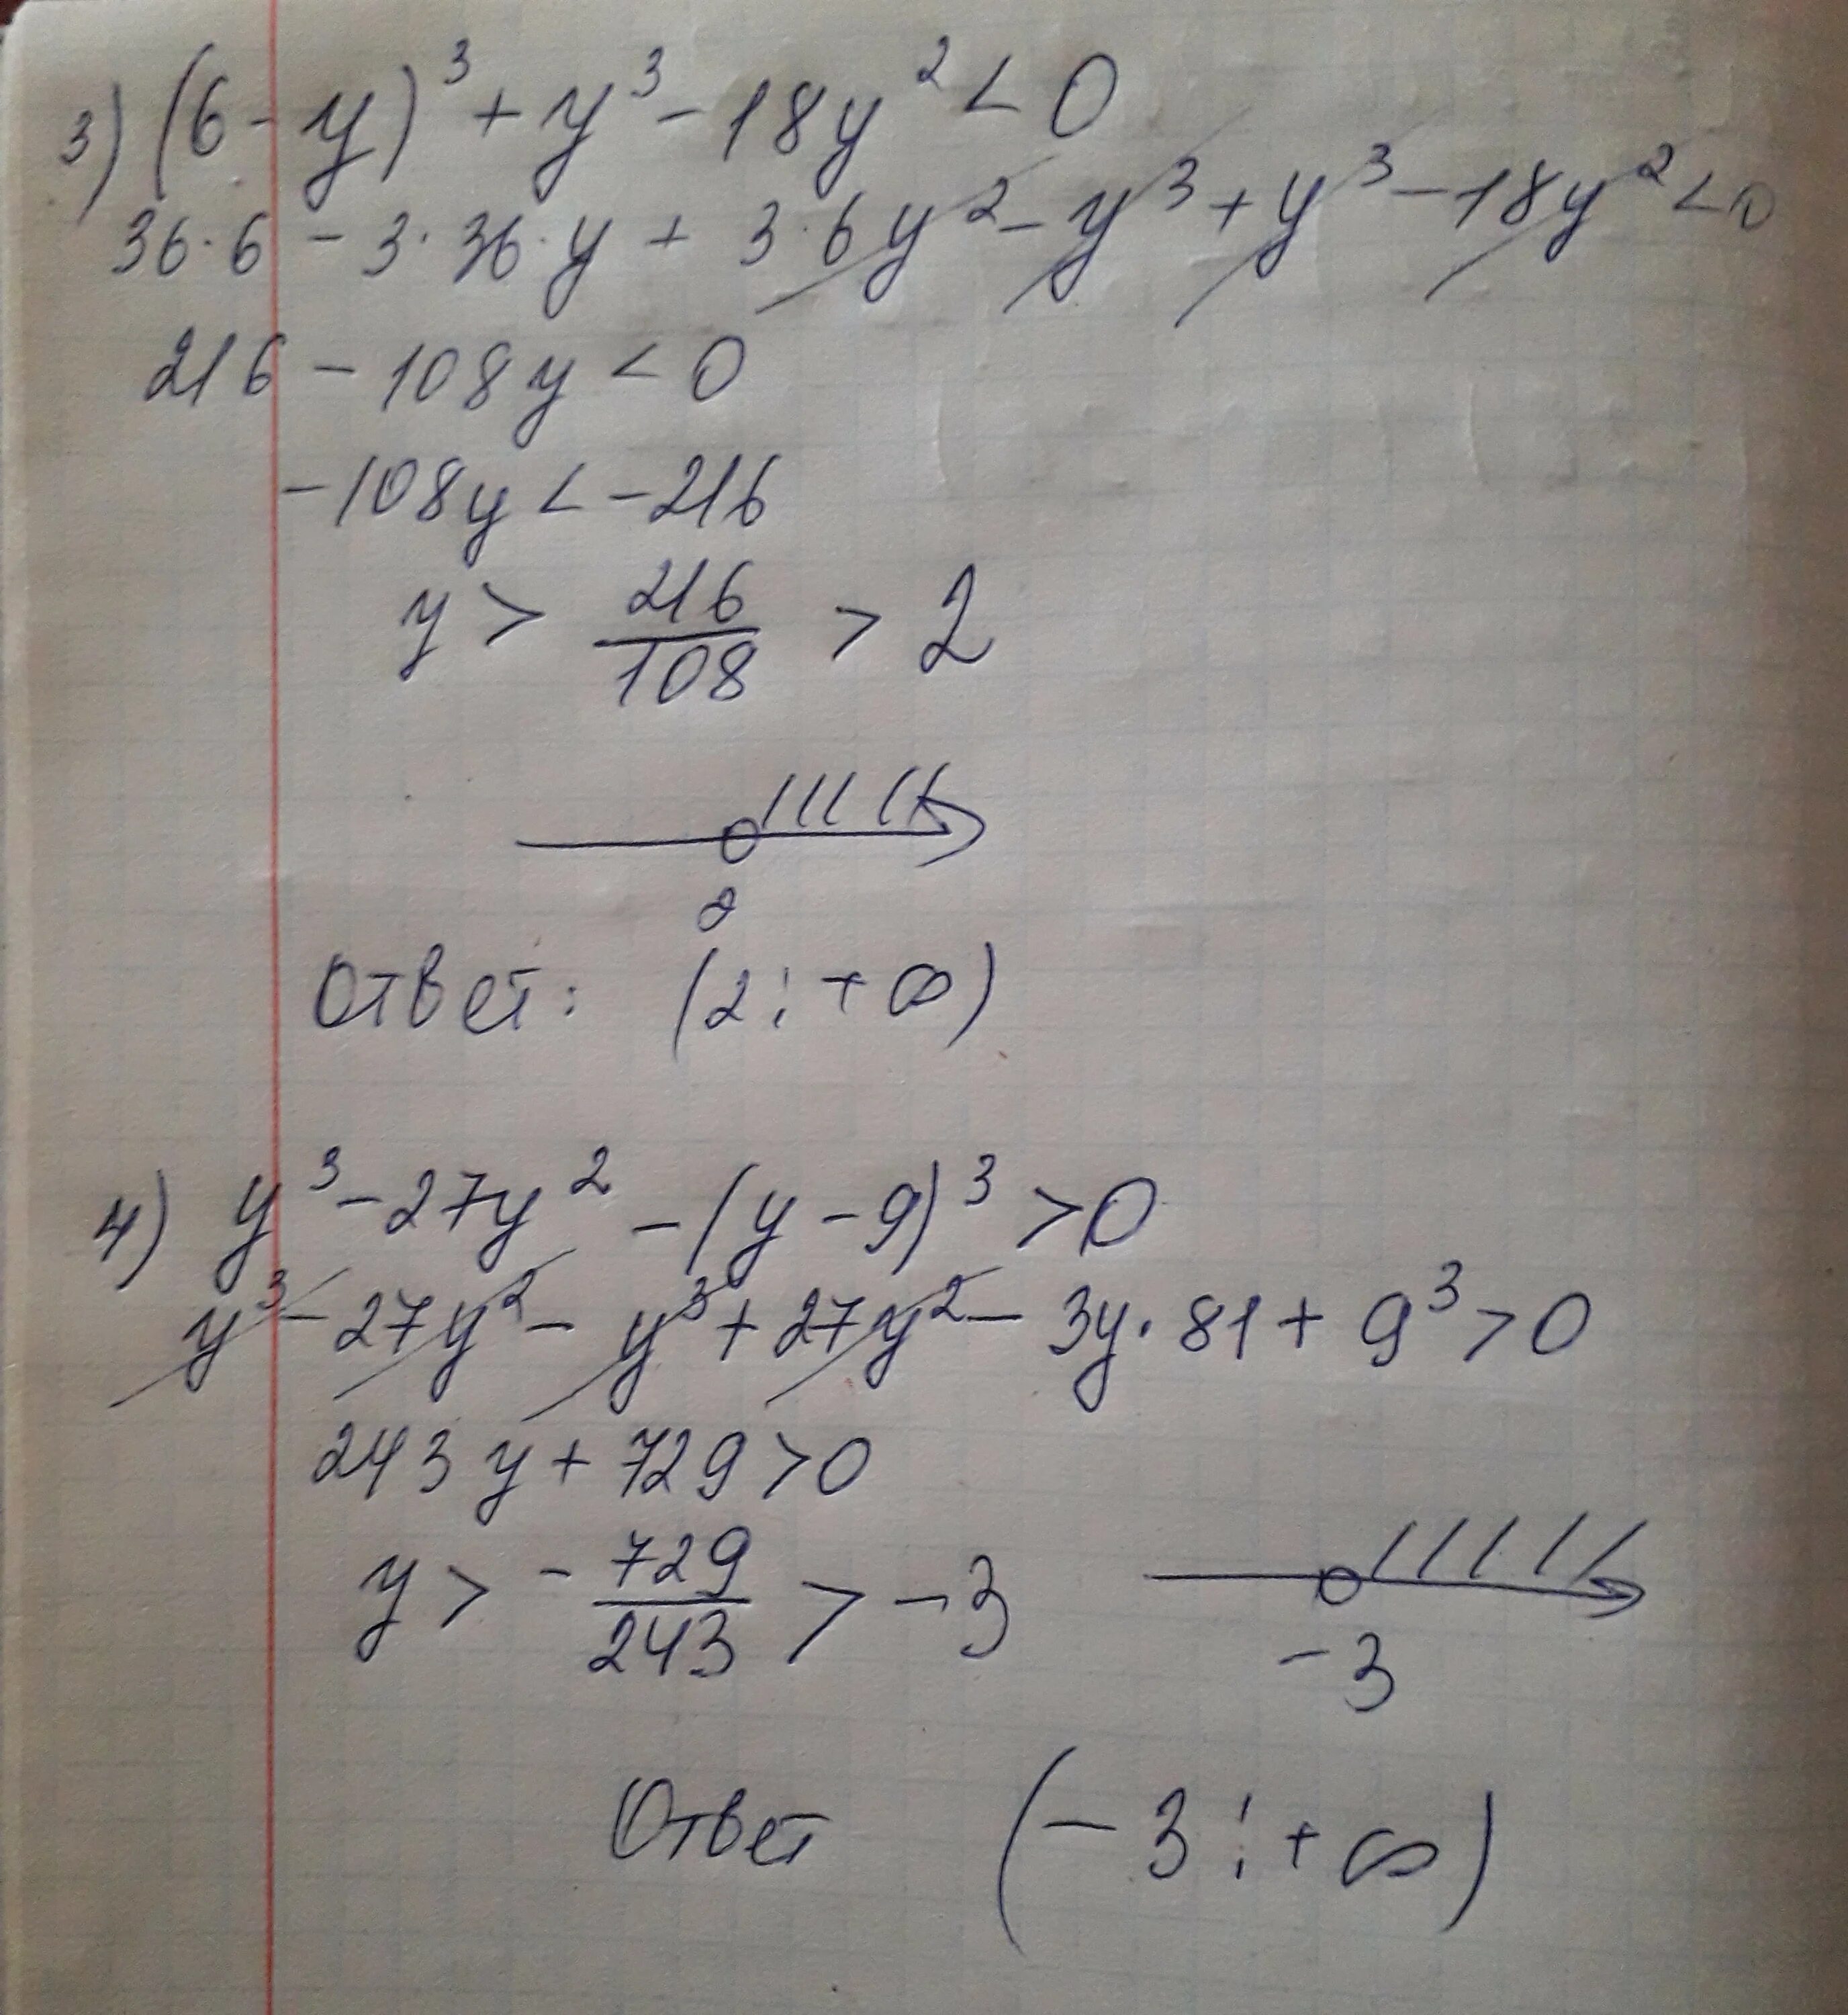 3) (6-y)³+y³-18y²<0
36·6-3·36·y+3·6y²-y³+y³-18y²<0
216-108y<0
-108y<-216
y > 216/108 > 2
2
Ответ: (2;+∞)
4) y³-27y²-(y-9)³>0
y³-27y²-y³+27y²-3y·81+9³>0
243y+729>0
y > -729/243 > -3
-3
Ответ (-3;+∞)